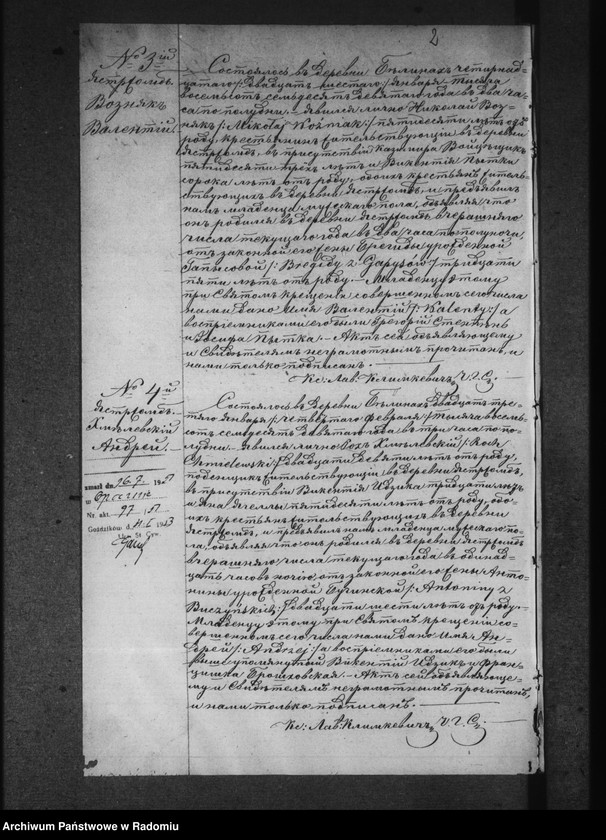 2
№ 3ій
Ястржомбъ.
Возьнякъ
Валентій.
Состоялось въ деревни Бѣлинахъ четырнад=
цатаго /: двадцать шестаго :/ января тысяча
восемьсотъ семьдесятъ девятаго года въ два ча=
са по полудни. — Явился лично Николай Воз=
някъ /: Mikołaj Woźniak :/ пятидесяти лѣтъ отъ
роду, крестьянинъ жительствующій въ деревни
Ястржомбъ, въ присутствіи Казимира
пятидесяти трехъ лѣтъ и Викентія Пытки
сорока лѣтъ отъ роду, обоихъ крестьянъ житель=
ствующихъ въ деревни Ястржомбъ, и предъявилъ
намъ младенца мужескаго пола, объявляя что
онъ родился въ деревни Ястржомбъ вчерашняго
числа текущаго года въ два часа по полуночи,
отъ законной его жены Брегиды урожденной
Гапысовой /: Bregidy z Gapysów :/ тридцати
пяти лѣтъ отъ роду. — Младенцу этому
при Святомъ крещеніи совершенномъ сего числа
нами дано имя Валентій /: Walenty :/ а
воспріемниками его были Грегорій
и Іосифа Пытка. — Актъ сей объявляющему
и Свидѣтелямъ неграмотнымъ прочитанъ, и
нами только подписанъ.
Кс: Лав: Климкевичъ У. Г. С.
№ 4й
Ястржомбъ.
Хмѣлевскій
Андрей.
zmarł dn. 26.7. 1951
w
Nr. akt. 97 51
Goździków
Urz. St. Cyw.
Состоялось въ деревни Бѣлинахъ двадцать тре=
тяго января /: четвертаго февраля :/ тысяча восемь=
сотъ семьдесятъ девятаго года въ три часа по по=
лудни. — Явился лично Рохъ Хмѣлевскій /: Roch
Chmielewski :/ двадцати девяти лѣтъ отъ роду,
поденщикъ жительствующій въ деревни Ястржомбъ,
въ присутствіи Викентія Идзика тридцати лѣтъ
и Яна Ягелы пятидесяти лѣтъ отъ роду, обо=
ихъ крестьянъ жительствующихъ въ деревни
Ястржомбъ, и предъявилъ намъ младенца мужескаго по=
ла, объявляя что онъ родился въ деревни Ястржомбъ
вчерашняго числа текущаго года въ одинад=
цать часовъ ночію отъ законной его жены Анто=
нины урожденной Бучинской /: Antoniny z
Buczyńskich :/ двадцати шести лѣтъ отъ роду. —
Младенцу этому при Святомъ крещеніи со=
вершенномъ сего числа нами дано имя Ан=
дрей /: Andrzej :/ а воспріемниками его были
выше упомянутый Викентій Идзикъ и Фран=
цишка Грошковская. — Актъ сей объявляюще=
му и Свидѣтелямъ неграмотнымъ прочитанъ,
и нами только подписанъ. —
Кс: Лав: Климкевичъ У. Г. С.
Archiwum Państwowe w Radomiu